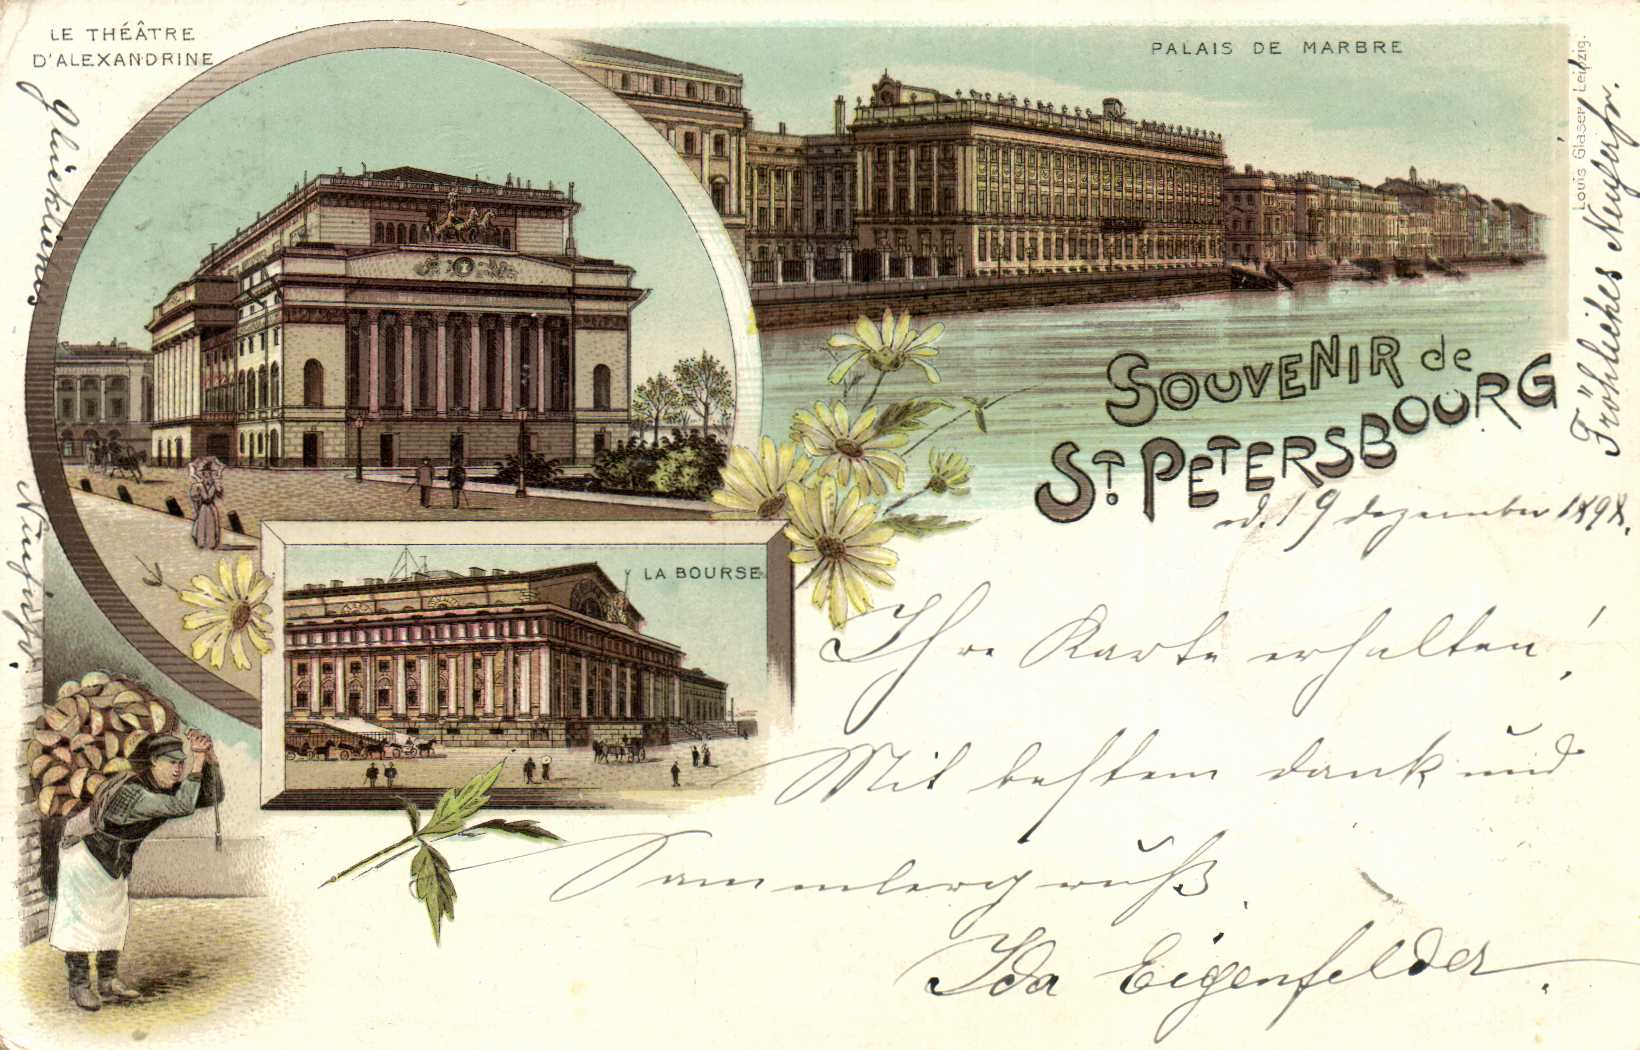 LE THÉÂTRE
D'ALEXANDRINE
PALAIS DE MARBRE
Louis Glaser, Leipzig.
SOUVENIR de
ST. PETERSBOURG
LA BOURSE
d. 19 dezember 1898.
Ihre Karte erhalten!
Mit bestem dank und
Sammlergruß
Ida Eigenfelder.
Fröhliches Neujahr.